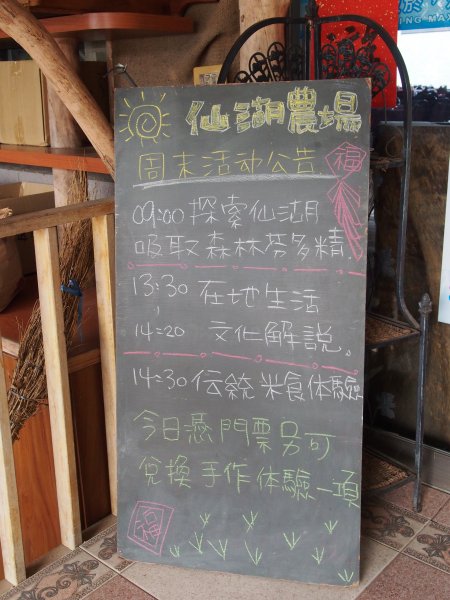 仙湖農場
周末活动公告
福
09:00 探索仙湖
吸取森林芬多精.
13:30 在地生活
14:20 文化解説。
14:30 伝統米食体驗
今日憑門票另可
兌換手作体驗一項